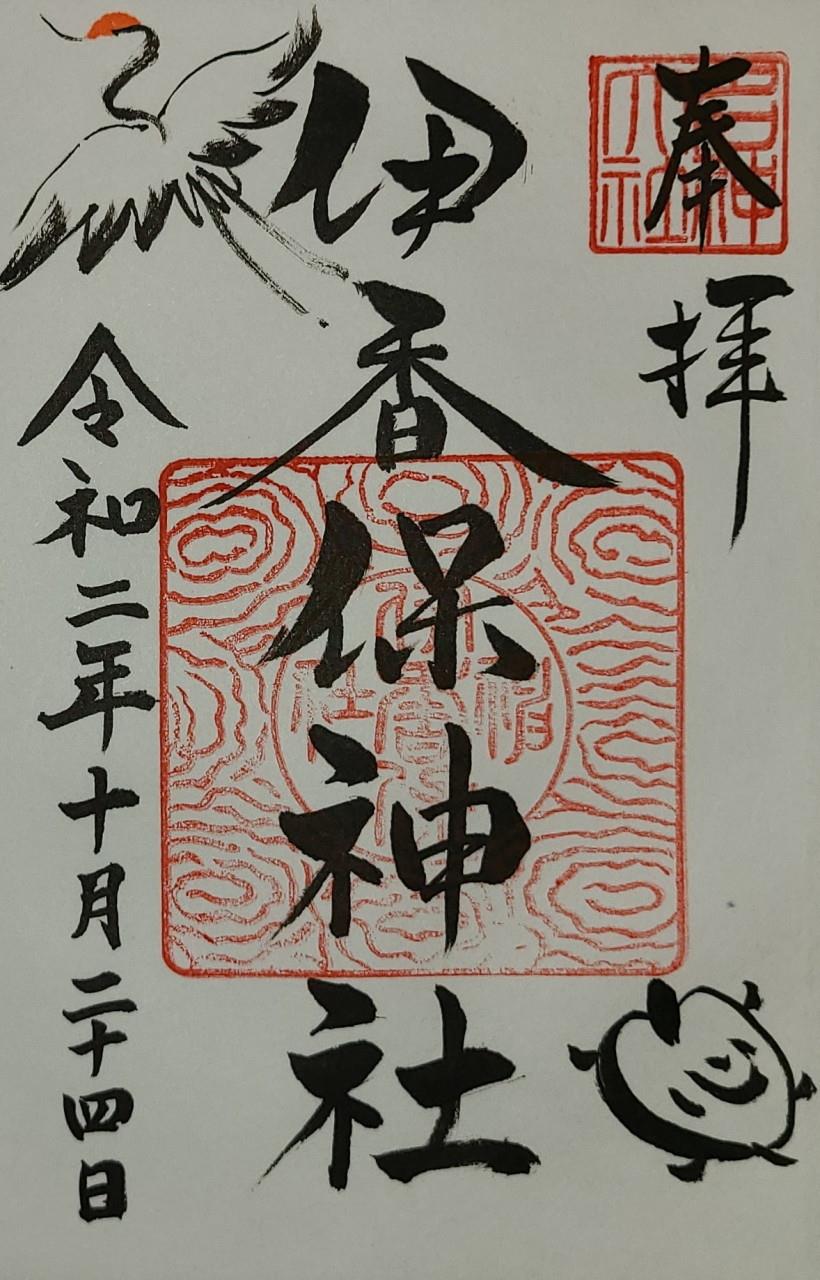 奉拝
名神大社
伊香保神社
令和二年十月二十四日